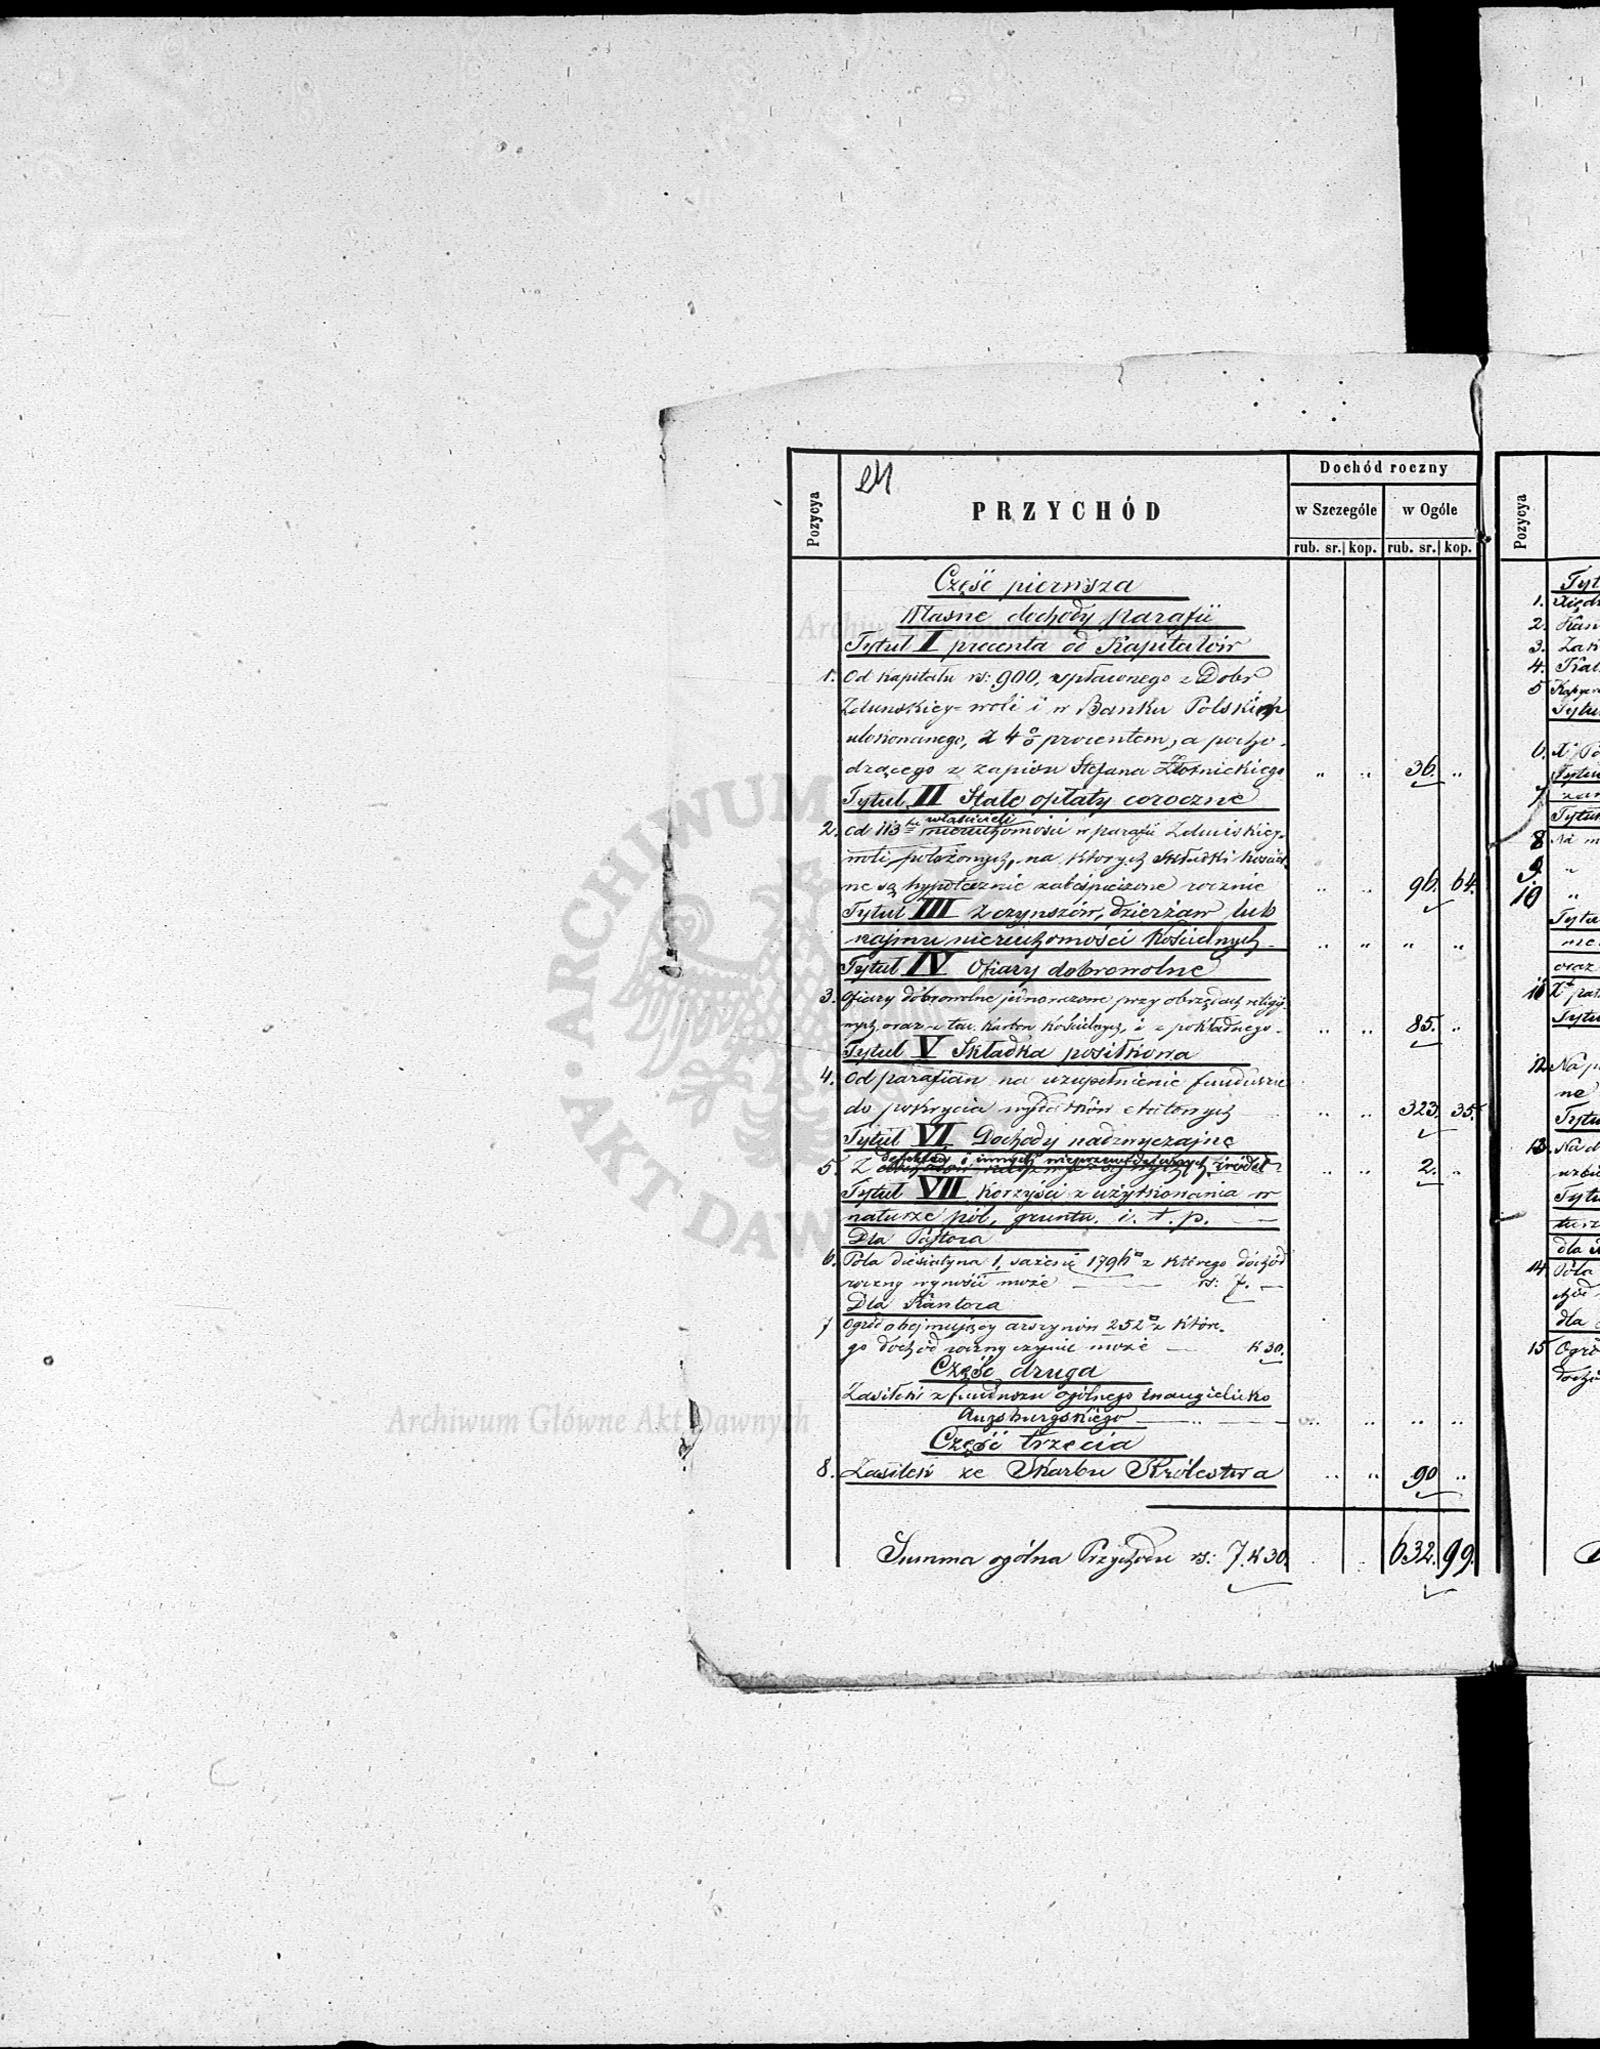 Dochód roczny
Pozycya
PRZYCHÓD
w Szczególe w Ogóle
rub. sr. kop. rub. sr. kop.
Pozycya
Część pierwsza
Własne dochody parafii
Tytuł I procenta od Kapitałów
1. Od Kapitału rs: 900, spłaconego z Dobr
Zduńskiey-woli i w Banku Polskim
ulokowanego, z 4% procentem, a pocho-
dzącego z zapisu Stefana Złotnickiego „ „ 36. „
Tytuł II Stałe opłaty coroczne
właścicieli
2. Od 113 nieruchomości w parafii Zduńskiej-
woli położonych, na których Składki kościel
ne są hypotecznie zabespieczone rocznie „ „ 96. 64.
Tytuł III Z czynszów, dzierżaw lub
najmu nieruchomości Kościelnych „ „ „ „
Tytuł IV Ofiary dobrowolne
3. Ofiary dobrowolne jednorazowe przy obrzędach religij
nych, oraz z ław. Karbon Kościelnych, i z pokładnego „ „ 85. „
Tytuł V Składka posiłkowa
4. Od parafian na uzupełnienie funduszu
do pokrycia wydatków etatowych „ „ 323. 35.
Tytuł VI Dochody nadzwyczajne
i innych nieprzewidzianych
5. Z źródeł „ „ 2. „
Tytuł VII Korzyści z użytkowania w
naturze pól, gruntu. i. t. p.
Dla Pastora
6. Pola diesiatyna 1, sażeni 1796 z którego dochód
roczny wynosić może rs: 7. —
Dla Kantora
7 Ogród obejmujący arszynów 252 z które-
go dochód roczny czynić może — K 30.
Część druga
Zasiłek z funduszu ogólnego Ewangielicko
Augsburgskiego „ „ „ „
Część trzecia
8. Zasiłek ze Skarbu Królestwa „ „ 90 „
Summa ogólna Przychodu rs: 7. K 30. 632. 99.
1.
2.
3.
4.
5
6.
7
8
9.
10
oraz
12.
ne
13.
dla
14.
dla
15.
Archiwum Główne Akt Dawnych
ARCHIWUM
AKT DAW